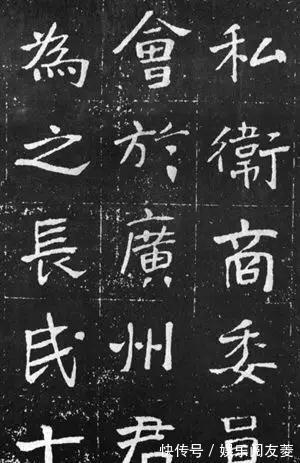 私衛商委員
會於廣州君
為之長民十
快传号／娱乐闺友菱